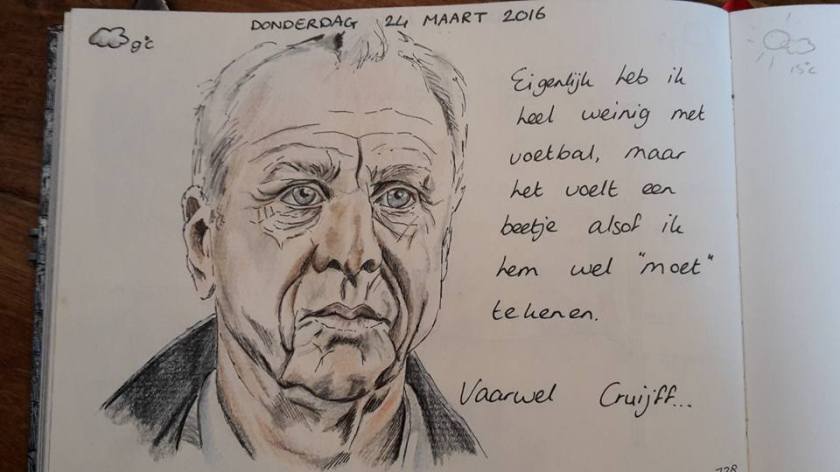 DONDERDAG 24 MAART 2016
9°C
15°C
Eigenlijk heb ik
heel weinig met
voetbal, maar
het voelt een
beetje alsof ik
hem wel "moet"
tekenen.
Vaarwel Cruijff...